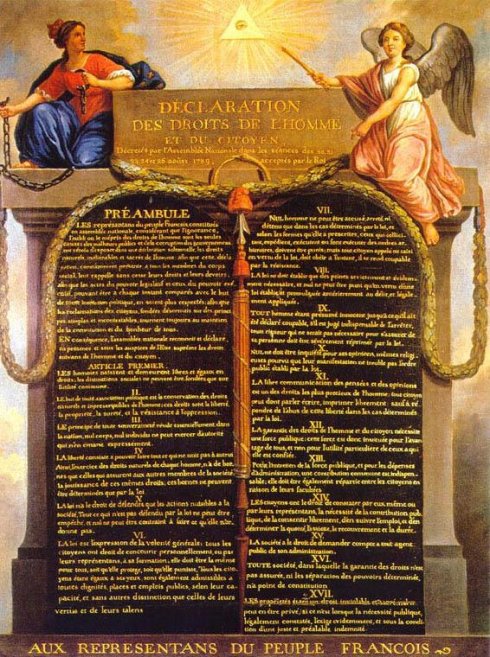 DECLARATION
DES DROITS DE L'HOMME
ET DU CITOYEN
Décretés par l'Assemblée Nationale dans les séances des 20, 21
23, 24 et 26 août 1789, acceptés par le Roi
PRÉAMBULE
LES représentans du peuple François, constitués
en assemblée nationale, considérant que l'ignorance,
l'oubli ou le mépris des droits de l'homme sont les seules
causes des malheurs publics et de la corruption des gouvernemens
ont résolu d'exposer dans une déclaration solemnelle, les droits
naturels, inaliénables et sacrés de l'homme: afin que cette décla-
ration, constamment présente à tous les membres du corps
social, leur rappelle sans cesse leurs droits et leurs devoirs:
afin que les actes du pouvoir législatif et ceux du pouvoir exé-
cutif, pouvant être à chaque instant comparés avec le but
de toute institution politique, en soient plus respectés; afin que
les réclamations des citoyens, fondées désormais sur des princi-
pes simples et incontestables, tournent toujours au maintien
de la constitution et du bonheur de tous.
EN conséquence, l'assemblée nationale reconnoît et déclare
en présence et sous les auspices de l'Etre suprême les droits
suivans de l'homme et du citoyen.
ARTICLE PREMIER.
LES hommes naissent et demeurent libres et égaux en
droits; les distinctions sociales ne peuvent être fondées que sur
l'utilité commune.
II.
LE but de toute association politique est la conservation des droits
naturels et imprescriptibles de l'homme; ces droits sont la liberté,
la propriété, la sureté, et la résistance à l'oppression.
III.
LE principe de toute souveraineté réside essentiellement dans
la nation, nul corps, nul individu ne peut exercer d'autorité
qui n'en émane expressément.
IV.
LA liberté consiste à pouvoir faire tout ce qui ne nuit pas à autrui
Ainsi, l'exercice des droits naturels de chaque homme, n'a de bor-
nes que celles qui assurent aux autres membres de la société
la jouissance de ces mêmes droits; ces bornes ne peuvent
être déterminées que par la loi.
V.
LA loi n'a le droit de défendre que les actions nuisibles à la
société. Tout ce qui n'est pas défendu par la loi ne peut être
empêché, et nul ne peut être contraint à faire ce qu'elle n'or-
donne pas.
VI.
LA loi est l'expression de la volonté générale: tous les
citoyens ont droit de concourir personnellement, ou par
leurs représentans, à sa formation; elle doit être la même
pour tous, soit qu'elle protege, soit qu'elle punisse. Tous les cito-
yens étant égaux à ses yeux, sont également admissibles à
toutes dignités, places et emplois publics, selon leur ca-
pacité, et sans autres distinction que celles de leurs
vertus et de leurs talens
VII.
NUL homme ne peut être accusé, arreté, ni
détenu que dans les cas déterminés par la loi, et
selon les formes qu'elle a prescrites, ceux qui sollici-
tent, expédient, exécutent ou font exécuter des ordres ar-
bitraires, doivent être punis; mais tout citoyen appelé ou saisi
en vertu de la loi, doit obéir à l'instant, il se rend coupable
par la résistance.
VIII.
LA loi ne doit établir que des peines strictement et évidem-
ment nécessaires, et nul ne peut être puni qu'en vertu d'une
loi établie et promulguée antérieurement au délit, et légale-
ment appliquée.
IX.
TOUT homme étant présumé innocent jusqu'à ce qu'il ait
été déclaré coupable, s'il est jugé indispensable de l'arrêter,
toute rigueur qui ne seroit pas nécessaire pour s'assurer de
sa personne doit être sévèrement réprimée par la loi.
X.
NUL ne doit être inquiété pour ses opinions, mêmes religi-
euses pourvu que leur manifestation ne trouble pas l'ordre
public établi par la loi.
XI.
LA libre communication des pensées et des opinions
est un des droits les plus précieux de l'homme: tout citoyen
peut donc parler, écrire, imprimer librement: sauf à ré-
pondre de l'abus de cette liberté dans les cas déterminés
par la loi.
XII.
LA garantie des droits de l'homme et du citoyen nécessite
une force publique: cette force est donc instituée pour l'avan-
tage de tous, et non pour l'utilité particuliere de ceux a qui
elle est confiée.
XIII.
POUR l'entretien de la force publique, et pour les dépenses
d'administration, une contribution commune est indispen-
sable; elle doit être également répartie entre les citoyens en
raison de leurs facultées
XIV.
LES citoyens ont le droit de constater par eux même ou
par leurs représentans, la nécessité de la contribution pub-
lique, de la consentir librement, d'en suivre l'emploi, et d'en
déterminer la quotité, l'assiette, le recouvrement et la durée.
XV.
LA société a le droit de demander compte a tout agent
public de son administration.
XVI.
TOUTE société, dans laquelle la garantie des droits n'est
pas assurée, ni les séparation des pouvoirs déterminée,
n'a point de constitution.
XVII.
LES propriétés étant un droit inviolable et sacré, nul ne
peut en être privé, si ce n'est lorsque la nécessité publique,
légalement constatée, l'exige evidemment, et sous la condi-
tion d'une juste et préalable indemnité.
AUX REPRESENTANS DU PEUPLE FRANCOIS